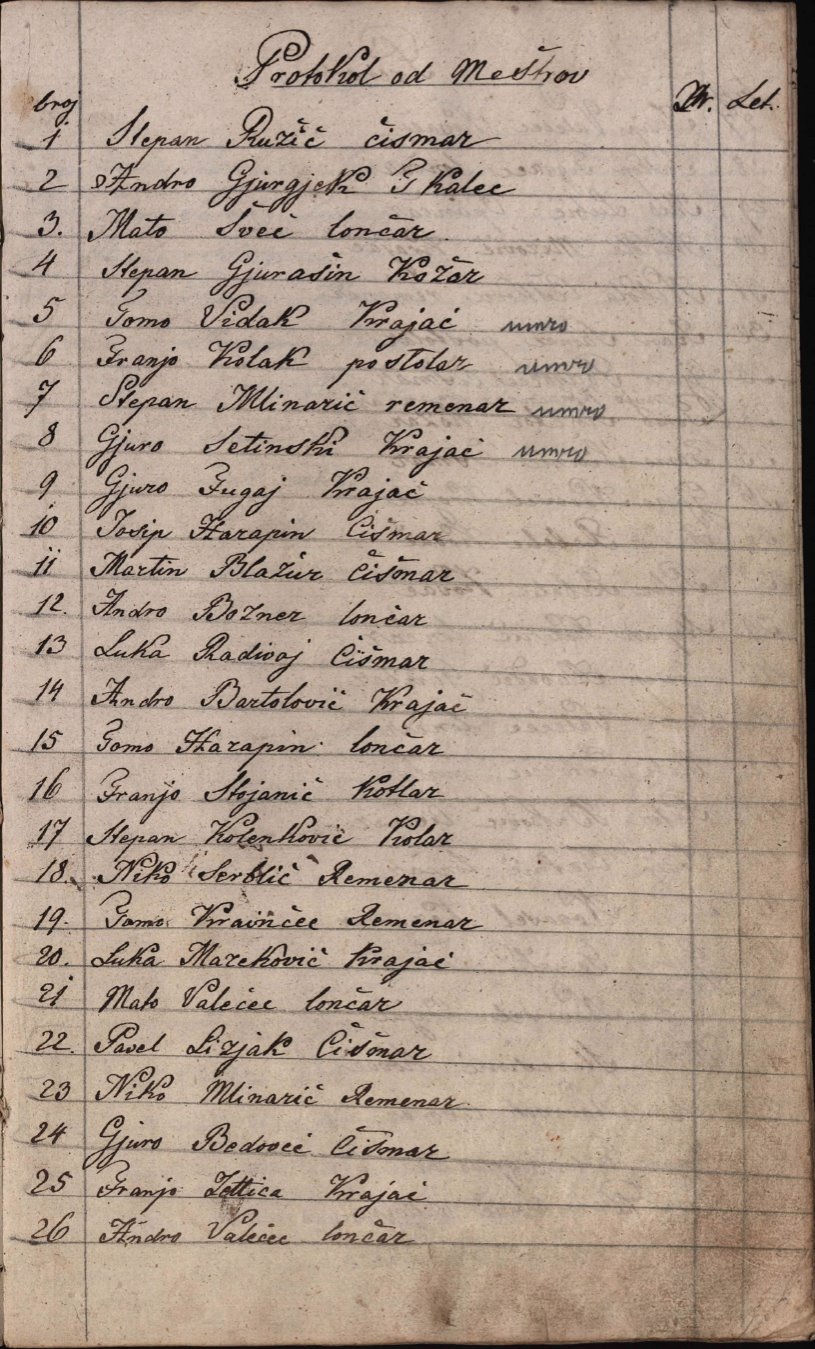 Protokol od Meštrov
broj Kr. Let.
1 Stepan Ružič čismar
2 Andro Gjurgjek Tkalec
3. Mato Šveč lončar
4 Stepan Gjurašin Kožar
5 Tomo Vidak Krajač umro
6 Franjo Kolak postolar umro
7 Stepan Mlinarič remenar umro
8 Gjuro Setinski Krajač umro
9 Gjuro Fugaj Krajač
10 Josip Harapin Čišmar
11 Martin Blažur Čišmar
12. Andro Bozner lončar
13 Luka Radivoj Čišmar
14 Andro Bartolovič Krajač
15 Tomo Harapin lončar
16 Franjo Stojanič Kotlar
17 Stepan Kolenkovič Kolar
18. Niko Serblič Remenar
19. Tomo Krainčec Remenar
20. Luka Marekovič Krajač
21 Mato Valečec lončar
22. Pavel Lizjak Čišmar
23 Niko Mlinarič Remenar
24 Gjuro Bedoveč Čišmar
25 Franjo Krajač
26 Andro Valečec lončar